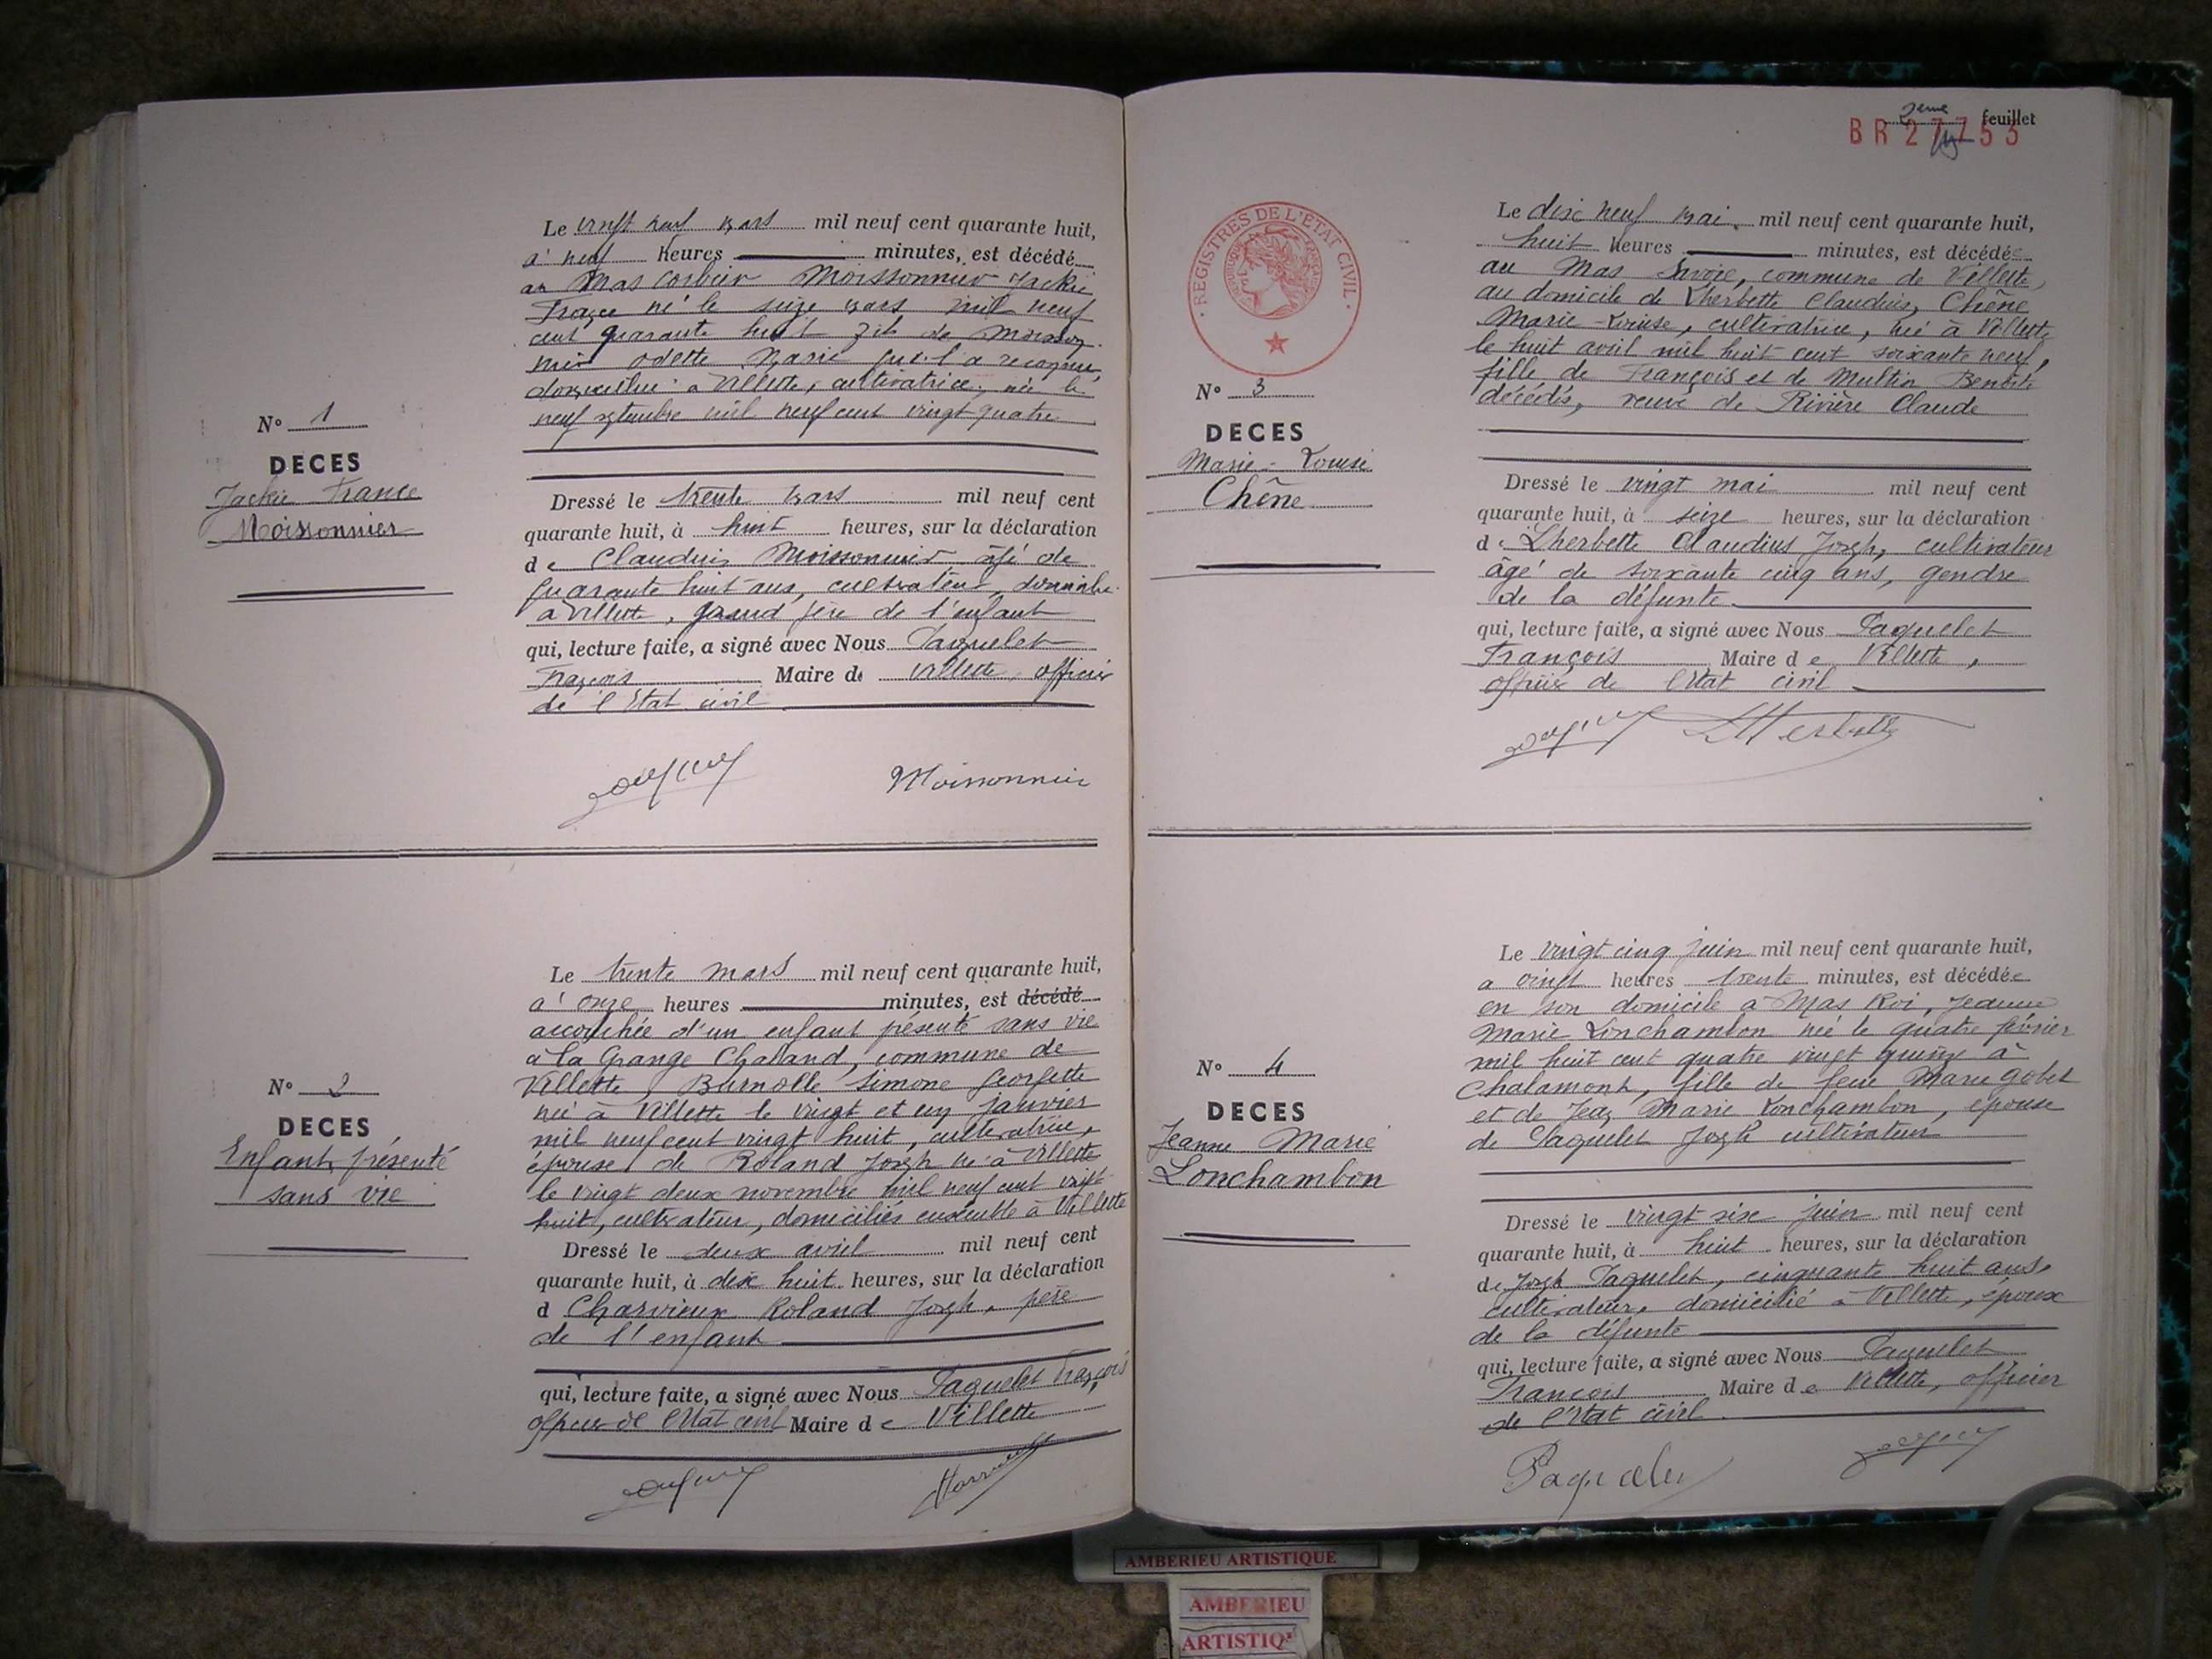 Le vingt neuf mars mil neuf cent quarante huit,
à neuf heures minutes, est décédé
au Mas Corbier Moissonnier Jackie
France né le seize mars mil neuf
cent quarante huit fils de Moisson
nier Odette Marie qui l'a reconnu,
domiciliée à Villette, cultivatrice, née le
neuf septembre mil neuf cent vingt quatre
N° 1
DECES
Jackie France
Moissonnier
Dressé le trente mars mil neuf cent
quarante huit, à huit heures, sur la déclaration
de Claudius Moissonnier âgé de
quarante huit ans, cultivateur, domicilié
à Villette, grand père de l'enfant
qui, lecture faite, a signé avec Nous Paquelet
François Maire de Villette officier
de l'Etat civil
Moissonnier
Le trente mars mil neuf cent quarante huit,
à onze heures minutes, est décédé
accouchée d'un enfant présenté sans vie
à la Grange Chaland, commune de
Villette, Burnolle Simone Georgette
née à Villette le vingt et un janvier
mil neuf cent vingt huit, cultivatrice,
épouse de Roland Joseph né à Villette
le vingt deux novembre mil neuf cent vingt
huit, cultivateur, domiciliés ensemble à Villette
N° 2
DECES
Enfant présenté
sans vie
Dressé le deux avril mil neuf cent
quarante huit, à dix huit heures, sur la déclaration
d Charvieux Roland Joseph, père
de l'enfant
qui, lecture faite, a signé avec Nous Paquelet François
officier de l'Etat civil Maire de Villette
2eme feuillet
BR 27753
REGISTRES DE L'ETAT CIVIL
Le dix neuf mai mil neuf cent quarante huit,
huit heures minutes, est décédée
au Mas Savoie, commune de Villette,
au domicile de Lherbette Claudius, Chêne
Marie-Louise, cultivatrice, née à Villette
le huit avril mil huit cent soixante neuf,
fille de François et de Multin Benoite
décédés, veuve de Rivière Claude
N° 3
DECES
Marie-Louise
Chêne
Dressé le vingt mai mil neuf cent
quarante huit, à seize heures, sur la déclaration
de Lherbette Claudius Joseph, cultivateur
âgé de soixante cinq ans, gendre
de la défunte
qui, lecture faite, a signé avec Nous Paquelet
François Maire de Villette,
officier de l'Etat civil
Lherbette
Le vingt cinq juin mil neuf cent quarante huit,
a vingt heures trente minutes, est décédée
en son domicile a Mas Roi, Jeanne
Marie Lonchambon née le quatre février
mil huit cent quatre vingt quinze à
Chalamont, fille de feue Marie Gobet
et de Jean Marie Lonchambon, épouse
de Paquelet Joseph cultivateur
N° 4
DECES
Jeanne Marie
Lonchambon
Dressé le vingt six juin mil neuf cent
quarante huit, à huit heures, sur la déclaration
de Joseph Paquelet, cinquante huit ans,
cultivateur, domicilié à Villette, époux
de la défunte
qui, lecture faite, a signé avec Nous Paquelet
François Maire de Villette, officier
de l'Etat civil
Paquelet
AMBERIEU ARTISTIQUE
AMBERIEU
ARTISTIQ